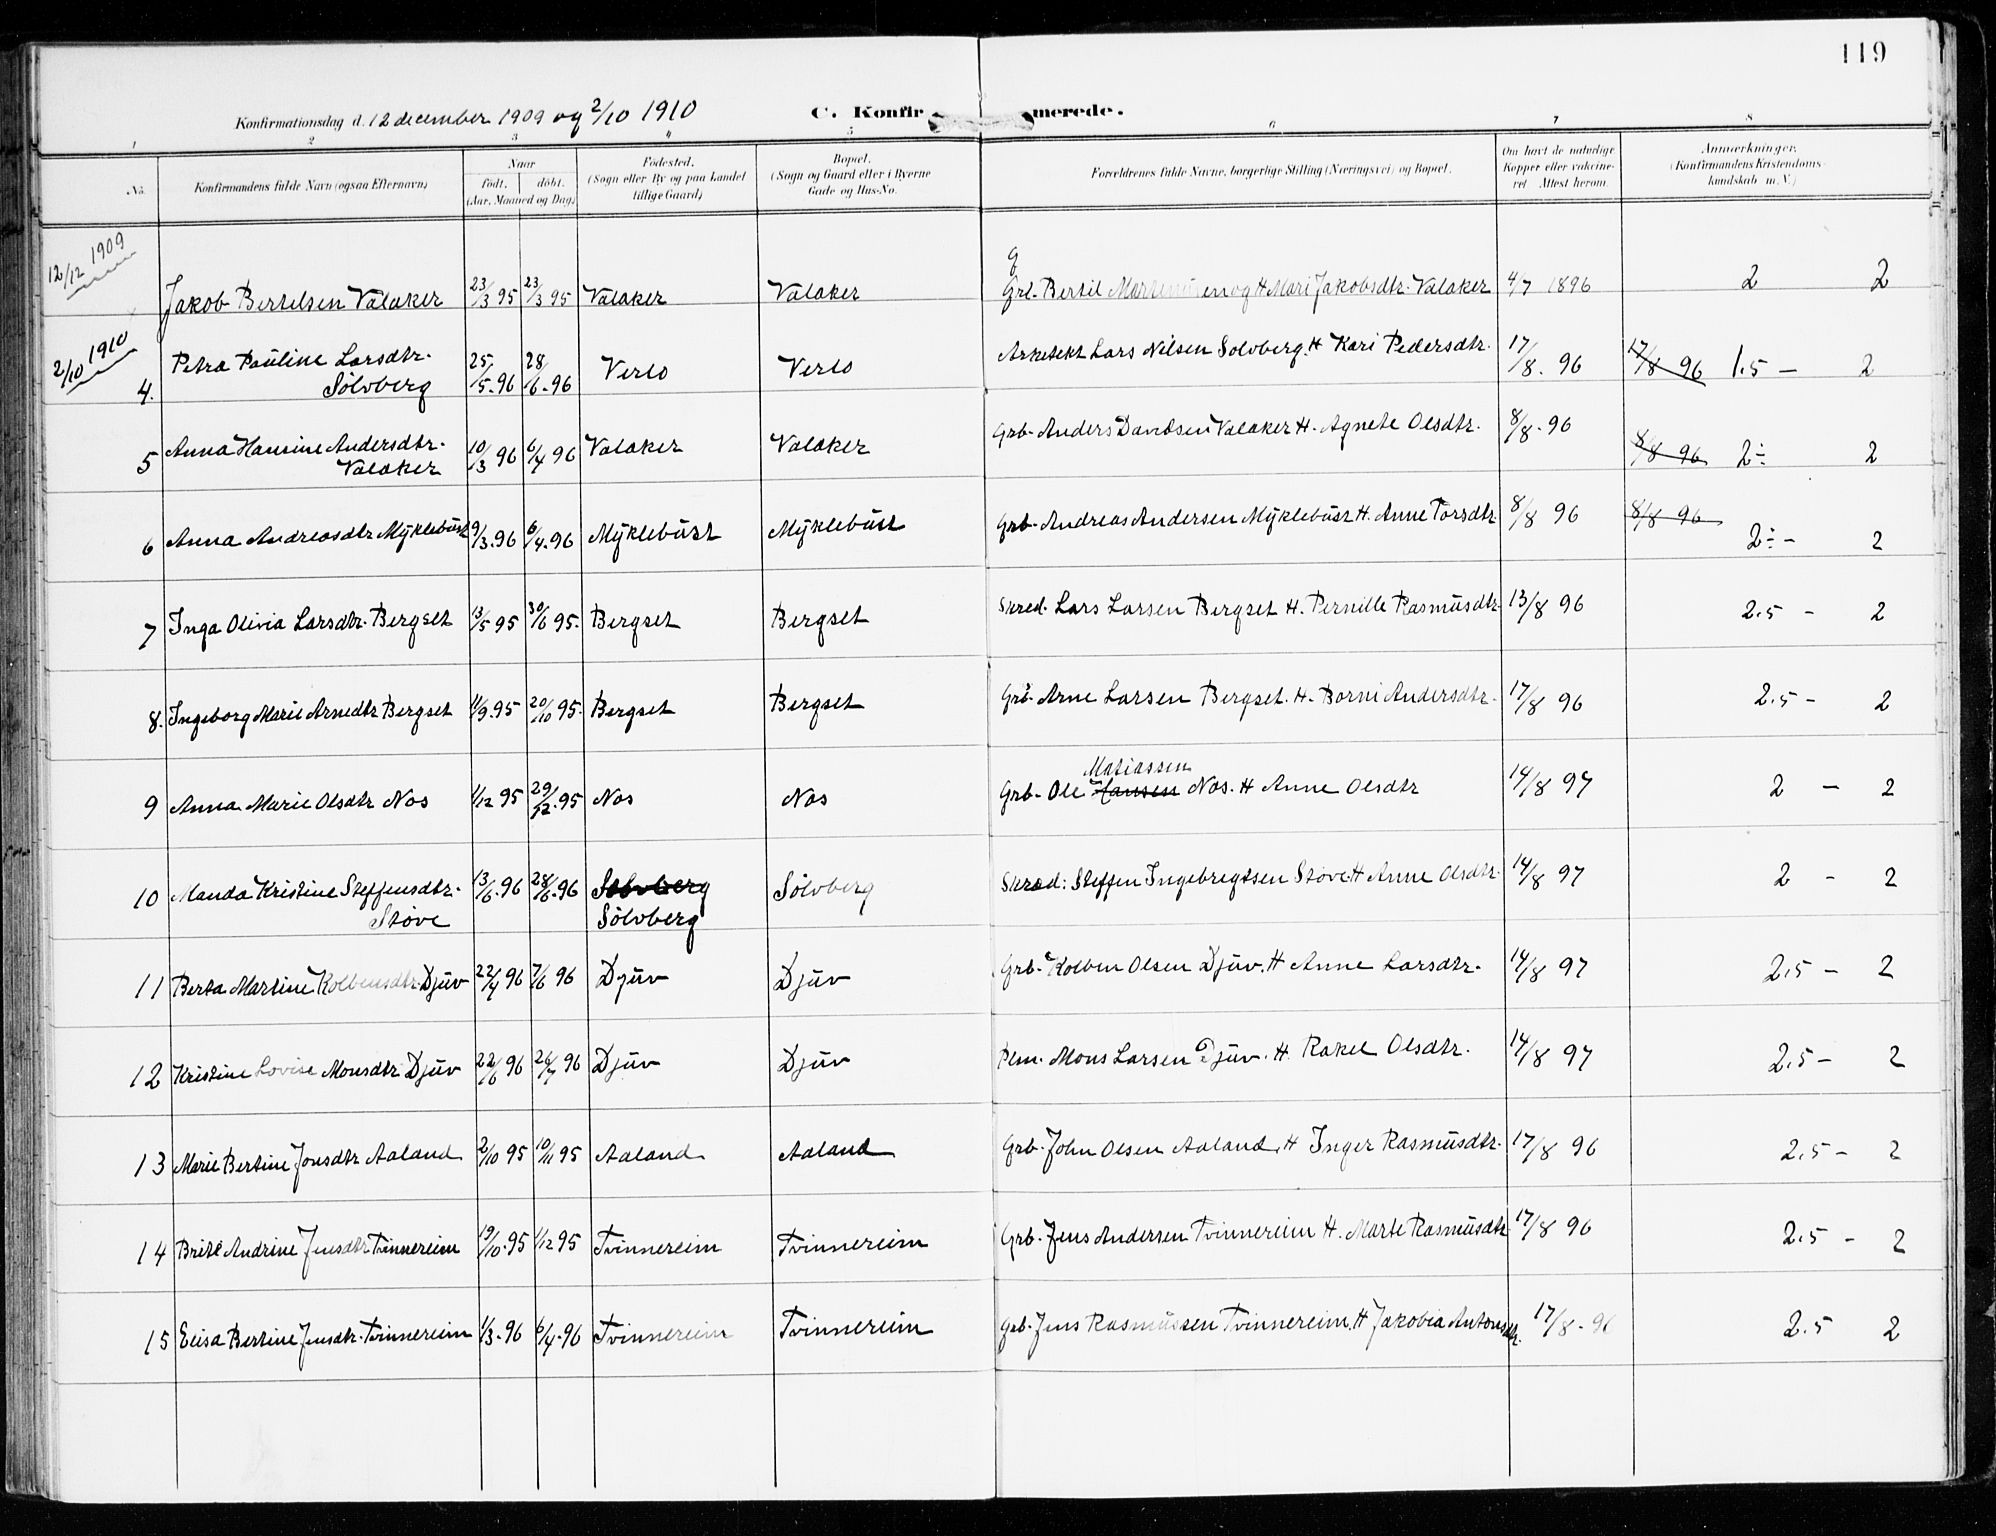 119
Konfirmationsdag d. 12 december 1909 og 2/10 1910 C. Konfirmerede.
1 2 3 4 5 6 7 8
No. Konfirmandens fulde Navn (ogsaa Efternavn) Naar født. døbt. (Aar, Maaned og Dag) Fødested. (Sogn eller By og paa Landet tillige Gaard) Bopæl. (Sogn og Gaard eller i Byerne Gade og Hus-No. Forældrenes fulde Navne, borgerlige Stilling (Næringsvei) og Bopæl. Om havt de naturlige Kopper eller vakcineret Attest herom. Anmærkninger. (Konfirmandens Kristendomskundskab m. V.)
12/12 1909
Jakob Bertelsen Valaker 23/3 95 23/3 95 Valaker Valaker Grb. Bertil og H Mari Jakobsdtr. Valaker 4/7 1896 2 2
2/10 1910
4. Petra Pauline Larsdtr. Sölvberg 25/5-96 28/6-96 Verlo Verlo Arkitekt Lars Nilsen Solvberg. H Kari Pedersdtr. 17/8. 96 17/8 96 1.5 - 2
5 Anna Hansine Andersdtr. Valaker 10/3 96 6/4 96 Valaker Valaker Grb. Anders Davidsen Valaker H. Agnete Olsdtr. 8/8-96 8/8 96 2÷ 2
6 Anna Andreasdtr Myklebust 9/3.96 6/4.96 Myklebust Myklebust Grb. Andreas Andersen Myklebust H. Anne Torsdtr 8/8 96 8/8 96 2÷- 2
7 Inga Olivia Larsdtr. Bergset 13/5 95 30/6 95. Bergset Bergset Skred. Lars Larsen Bergset H. Pernille Rasmusdtr. 13/8 96 2.5 - 2
8. Ingeborg Marie Arnedtr Bergset 11/9.95 20/10 95. Bergset Bergset Grb. Arne Larsen Bergset. H. Borni Andersdtr. 17/8 96 2.5 - 2
9 Anna Marie Olsdtr Nos 1/12 95 29/12.95 Nos Nos Grb. Ole Hansen Matiassen Nos. H Anne Olsdtr 14/8 97 2 - 2
10 Manda Kristine Steffensdtr. Støve 13/6.96 28/6.96 Sölvberg Sölvberg Sölvberg Skræd: Steffen Ingebregtsen Støve H Anne Olsdtr. 14/8 97 2 - 2
11 Berta Martine Kolbensdtr. Djuv 22/4 96 7/6 96 Djuv Djuv Grb. Kolben Olsen Djuv. H Anne Larsdtr. 14/8 97 2.5 - 2
12 Kristine Lovise Monsdtr Djuv 22/6 96 26/7 96 Djuv Djuv Plm. Mons Larsen Djuv. H. Rakel Olsdtr. 14/8 97 2.5 - 2
13 Marie Bertine Jonsdtr Aaland 2/10 95 10/11 95 Aaland Aaland Grb. John Olsen Aaland, H Inger Rasmusdtr. 17/8 96 2.5 - 2
14 Brite Andrine Jensdtr Tvinnereim 19/10.95 1/12 95 Tvinnereim Tvinnereim Grb. Jens Andersen Tvinnereim H. Marte Rasmusdtr 17/8 96 2.5 - 2
15 Elisa Bertine Jensdtr. Tvinnereim 1/3-96 6/4-96 Tvinnereim Tvinnereim Grb. Jens Rasmussen Tvinnereim. H Jakobia Antonsdtr. 17/8-96 2.5 2